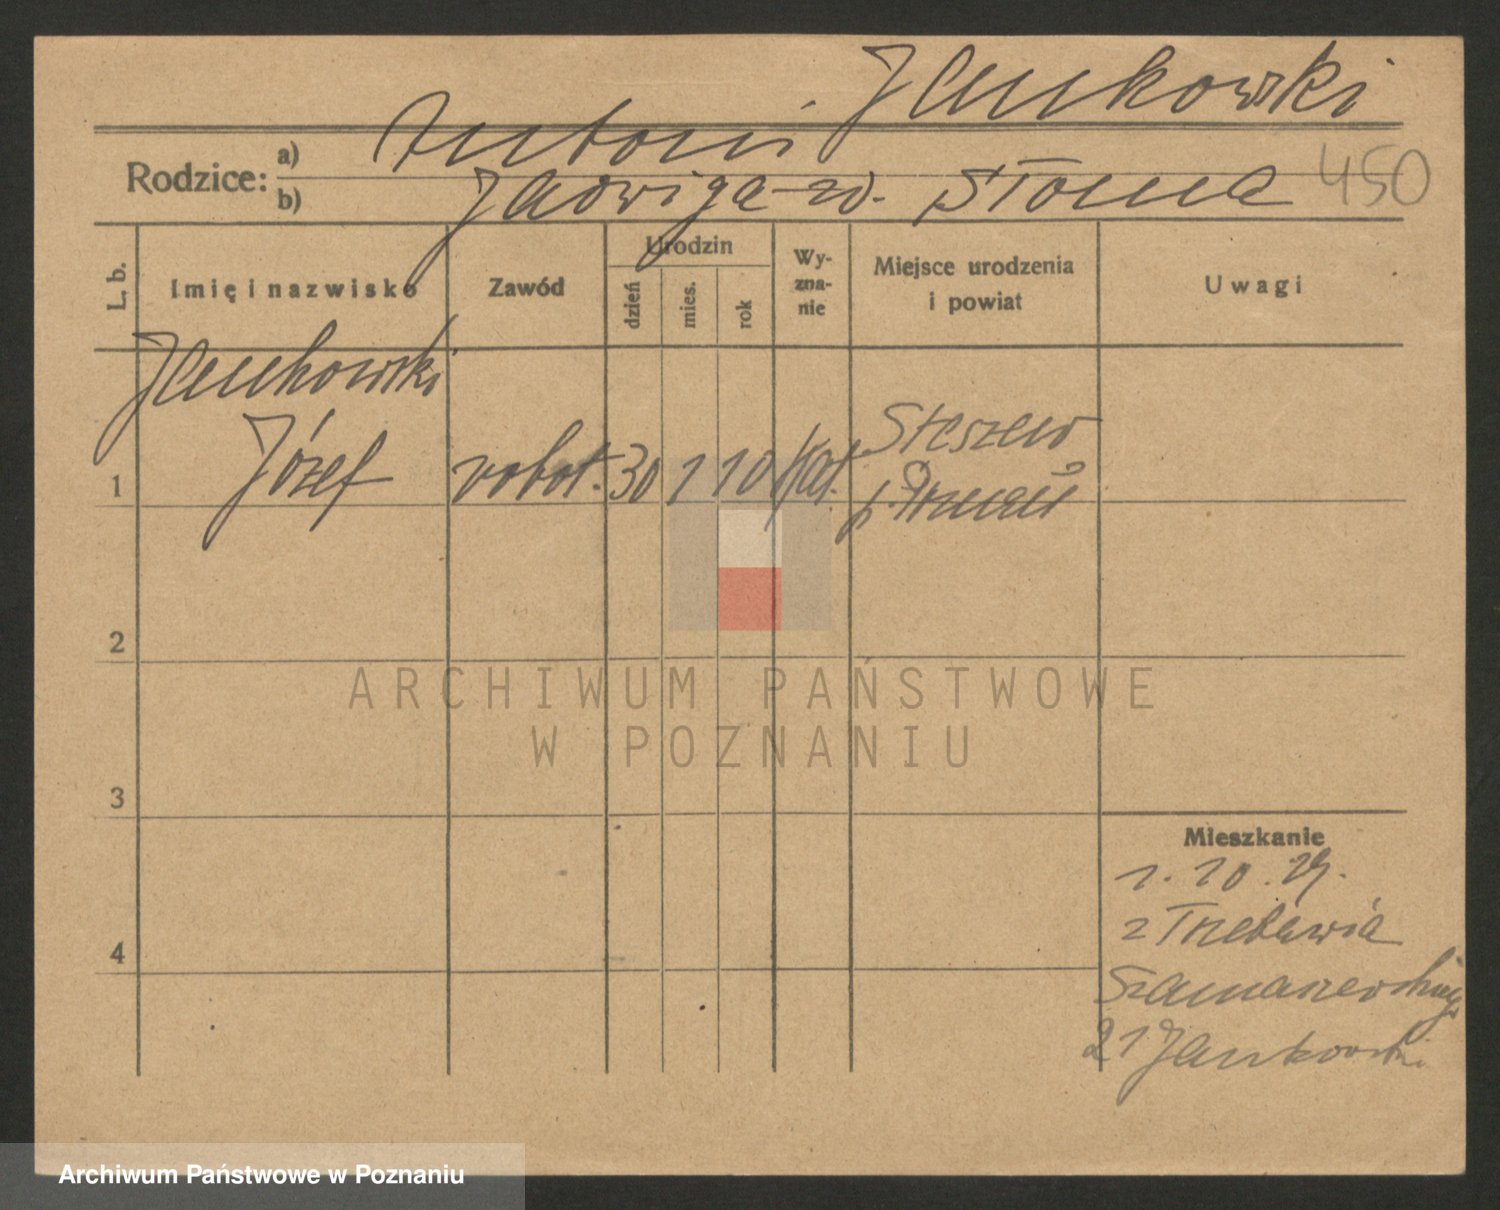 Jankowski
Rodzice: a) Antoni
b) Jadwiga zd. Słoma 450
L. b. Imię i nazwisko Zawód Urodzin dzień mies. rok Wyznanie Miejsce urodzenia i powiat Uwagi
Jankowski
1 Józef robot. 30 1 10 kat. Stęszew
p. Poznań
2
ARCHIWUM PAŃSTWOWE
W POZNANIU
3
Mieszkanie
1. 10. 29.
z Trzebawia
4
Szamarzewskiego
21 Jankowski
Archiwum Państwowe w Poznaniu